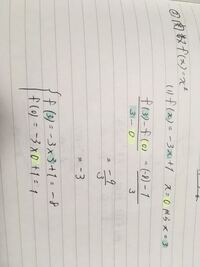 ② 関数 f(x)=x²
(1) f(x)=-3x+1 x=0から x=3
f(3)-f(0) / 3-0 = (-8)-1 / 3
= -9/3
= -3
{ f(3)=-3×3+1=-8
f(0)=-3×0+1=1